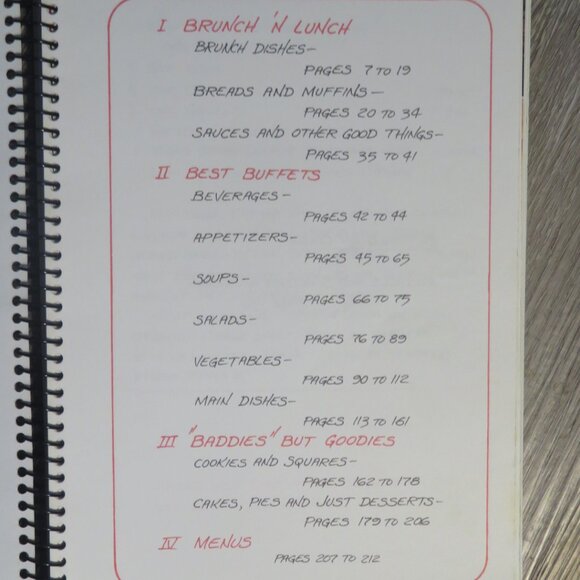 I BRUNCH 'N LUNCH
BRUNCH DISHES—
PAGES 7 TO 19
BREADS AND MUFFINS—
PAGES 20 TO 34
SAUCES AND OTHER GOOD THINGS—
PAGES 35 TO 41
II BEST BUFFETS
BEVERAGES—
PAGES 42 TO 44
APPETIZERS—
PAGES 45 TO 65
SOUPS—
PAGES 66 TO 75
SALADS—
PAGES 76 TO 89
VEGETABLES—
PAGES 90 TO 112
MAIN DISHES—
PAGES 113 TO 161
III "BADDIES" BUT GOODIES
COOKIES AND SQUARES—
PAGES 162 TO 178
CAKES, PIES AND JUST DESSERTS—
PAGES 179 TO 206
IV MENUS
PAGES 207 TO 212